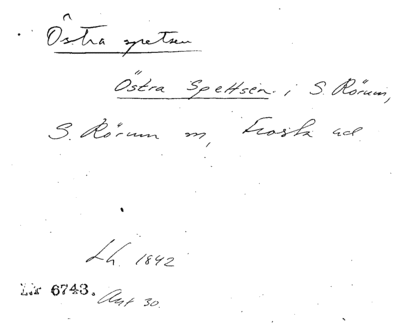 Östra spetsen
Östra Spettsen i S. Rörum,
S. Rörum sn, Frosta hd
Lh. 1842
Lir 6743. Akt 30.